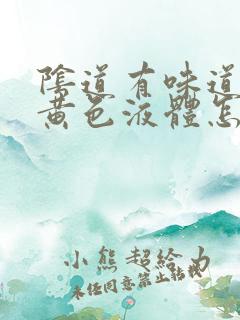 陰道有味道
黃色液體怎
小熊超給力
未經同意禁止轉載